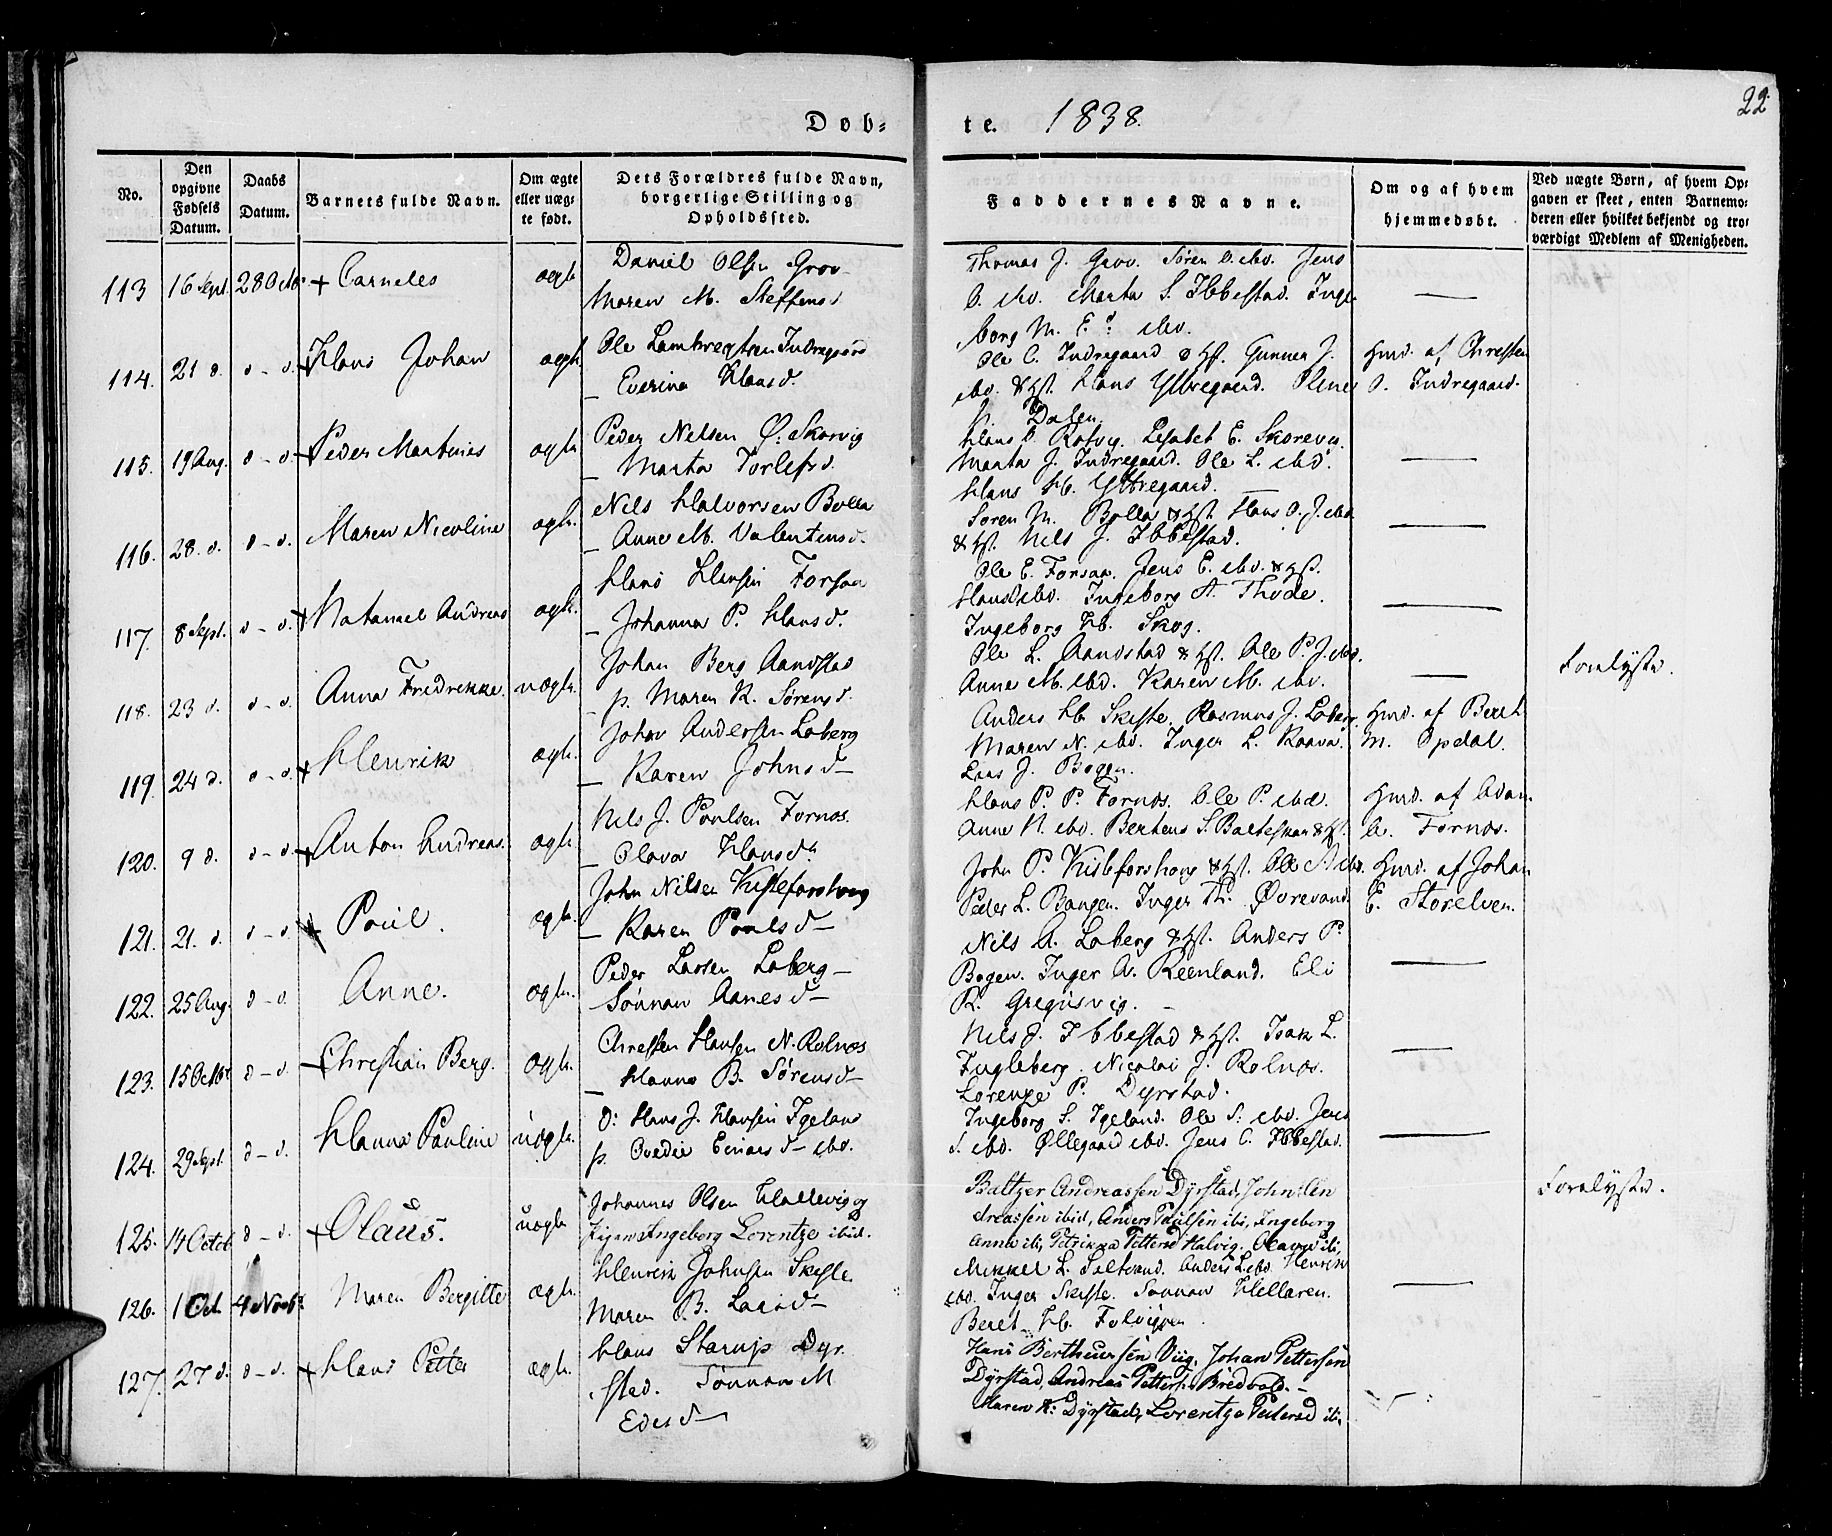 22.
Døb- te. 1838.
No.
Den opgivne Fødsels Datum.
Daabs Datum.
Barnets fulde Navn.
Om ægte eller uæg- te født.
Dets Forældres fulde Navn, borgerlige Stilling og Opholdssted.
Faddernes Navne.
Om og af hvem hjemmedøbt.
Ved uægte Børn, af hvem Op- gaven er skeet, enten Barnemo- deren eller hvilket bekjendt og tro- værdigt Medlem af Menigheden.
113 16 Sept. 28 Octbr + Carneles ægte
Daniel Olsen Grov
Maren M. Steffensd
Thomas J. Grov. Søren O. ibd. Jens
O. ibd. Marta S. Ibbestad. Inge-
borg M. E.d ibd.
114. 21 d. d - d. + Hans Johan ægte
Ole Lambregtsen Indregaard
– Everina Hansd.
Ole C. Indregaard & Hst. Gunner J.
ibd. & Hst. Hans Yttregaard.
P. Dalen.
Hmd. af Christen
O. Indregaard.
115. 19 Aug. d - d. + Peder Martinus ægte
Peder Nelsen Ø: Skorvig
– Marta Torlefsd.
Hans O. Rotvg. Lisabet E. Skorevg.
Marta J. Indregaard. Ole L. ibd.
Hans Hb. Yttregaard.
116. 28. d. d - d. Maren Nicoline ægte.
Nils Halvorsen Bolla
– Anne M. Valentinsd.
Søren M. Bolla & Hst. Hans O. J. ibd.
& Hst. Nils J. Ibbestad.
117. 8 Sept. d - d. + Natanael Andreas ægte.
Hans Hansen Forsaa
– Johanna P. Hansd.
Ole E. Forsaa. Jens E. ibd. & Hst.
Hans ibd. Ingeborg A. Thode.
Ingeborg Hb. Skog.
118. 23 d. d - d. Anna Fredrikke. uægte.
Johan Berg Aandstad
p. Maren K. Sørensd.
Ole L. Aandstad & Hst. Ole P. J. ibd.
Anne M. ibd. Karen M. ibd.
Forelyste.
119. 24 d. d - d. + Henrik ægte.
Johan Andersen Loberg
– Karen Johnsd –
Anders Hb. Skiste. Rasmus J. Loberg.
Maren N. ibd. Inger L. Raava.
Lars J. Bogen.
Hmd. af Beret
M. Opdal.
120. 9 d. d - d. + Anton Andreas. ægte
Nils J. Poulsen Fornæs.
– Olava Hansd.
Hans P. P. Fornæs. Ole P. ibd.
Anne N. ibd. Berteus S. Balteskar & Hst.
Hmd. af Adan
A. Fornæs.
121. 21. d. d - d. + Poul. ægte.
John Nilsen Kisteforshoug
– Karen Poulsd –
John P. Kisteforshoug & Hst. Ole N. ibd.
Peder L. Bangen. Inger Th. Øvrevand
Hmd. af Johan
E. Storelven.
122. 25 Aug. d - d. Anne. ægte.
Peder Larsen Loberg –
Sønnau Aanesd –
Nils A. Loberg & Hst. Anders P.
Bogen. Inger A. Reenland. Eli
R. Gregusvig. –
123. 15 Octbr d - d. + Christian Berg. ægte.
Christen Hansen N. Rolnæs
– Hanna B. Sørensd –
Nils J. Ibbestad & Hst. Isak L.
Fugleberg. Nicolai J. Rolnæs.
Lorenze P. Dyrstad.
124. 29 Sept. d - d. Hanna Pauline uægte.
U: Hans J. Hansen Igeland
p. Ovedie Einarsd – ibd.
Ingeborg S. Igeland. Ole S. ibd. Jens
S. ibd. Øllegaard ibd. Jens C. Ibbestad.
125. 14 Octob d - d. + Olaus. uægte
Johannes Olsen Hallevig og
Pigen Ingeborg Lorentze ibid.
Baltzer Andreassen Dyrstad, John An
dreassen ibid, Anders Paulsen ibi, Ingeborg
Anna ibi, Petrikka Pettersd Halvig. Olava ibi,
Forelyste.
126. 1 Oct. 4 Novbr. Maren Bergitte ægte.
Henrik Johnsen Skiste
Maren B. Larsd –
Mikkel L. Saltvand. Anders L. ibd. Henrik
ibd. Inger Skiste. Sønnau Hellaren.
Beret Hb. Folvigen.
127. 27 d. d - d. + Hans Petter ægte.
Hans Starup Dyr-
stad. Sønnau M
Edisd –
Hans Bertheussen Viig, Johan Pettersen
Dyrstad, Andreas Petters. Bredvold. –
Maren K: Dyrstad, Lorentze Petersd ibi,